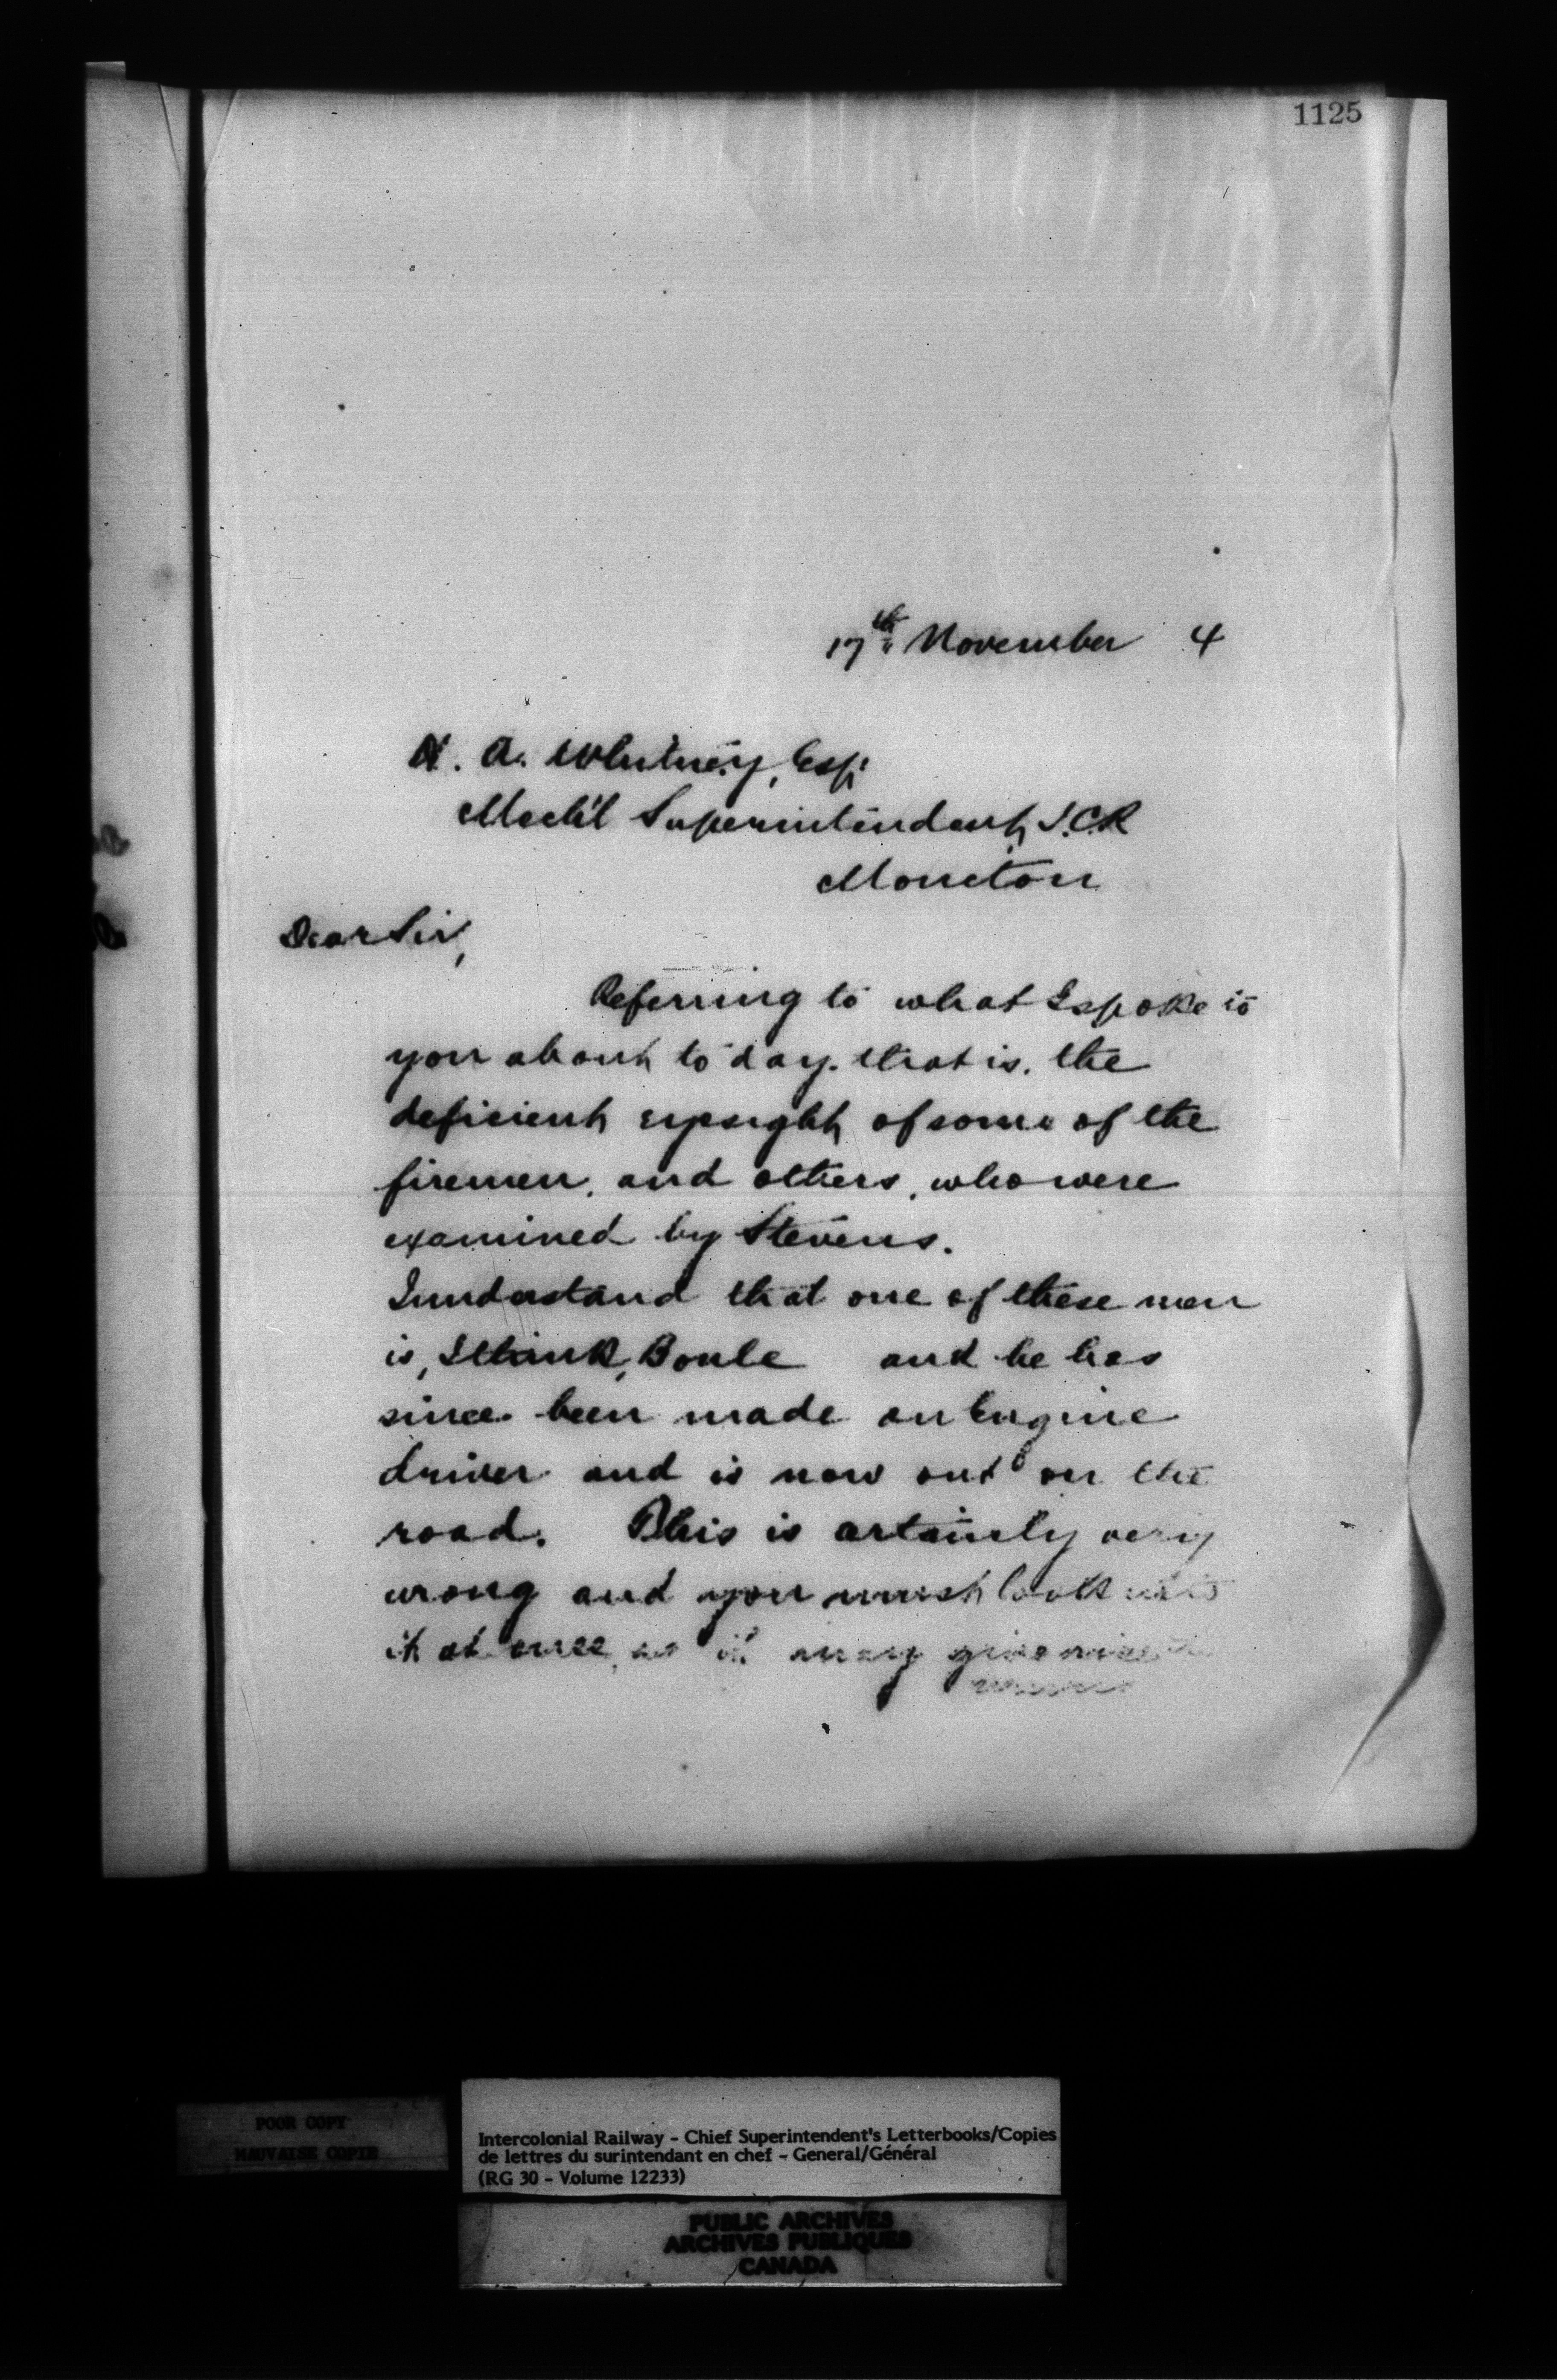 1125
17th November 4
H. A. Whitney, Esq.
Mech'l Superintendent, I.C.R
Moncton
Dear Sir,
Referring to what I spoke to
you about to day. that is. the
deficient eyesight of some of the
firemen, and others, who were
examined by Stevens.
I understand that one of these men
is, I think, Boule and he has
since been made an Engine
driver and is now out on the
road. This is certainly very
wrong and you must look into
it at once, as it may give rise to
POOR COPY
MAUVAISE COPIE
Intercolonial Railway - Chief Superintendent's Letterbooks/Copies
de lettres du surintendant en chef - General/Général
(RG 30 - Volume 12233)
PUBLIC ARCHIVES
ARCHIVES PUBLIQUES
CANADA